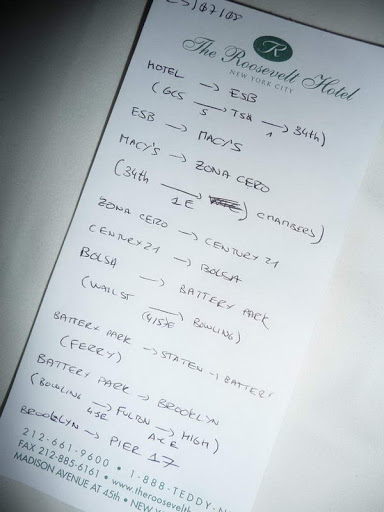 25/07/08
R
The Roosevelt Hotel
NEW YORK CITY
HOTEL → ESB
(GCS → 5 TSQ → 1 34th)
ESB → MACY'S
MACY'S → ZONA CERO
(34th → 1 E CHAMBERS)
ZONA CERO → CENTURY 21
CENTURY 21 → BOLSA
BOLSA → BATTERY PARK
(WALL ST → (4)5)E BOWLING)
BATTERY PARK → STATEN → BATTERY
(FERRY)
BATTERY PARK → BROOKLYN
(BOWLING → 45E FULTON → A x E HIGH)
BROOKLYN → PIER 17
212-661-9600 • 1-888-TEDDY-N
FAX 212-885-6161 • www.theroosevelth
MADISON AVENUE AT 45th • NEW